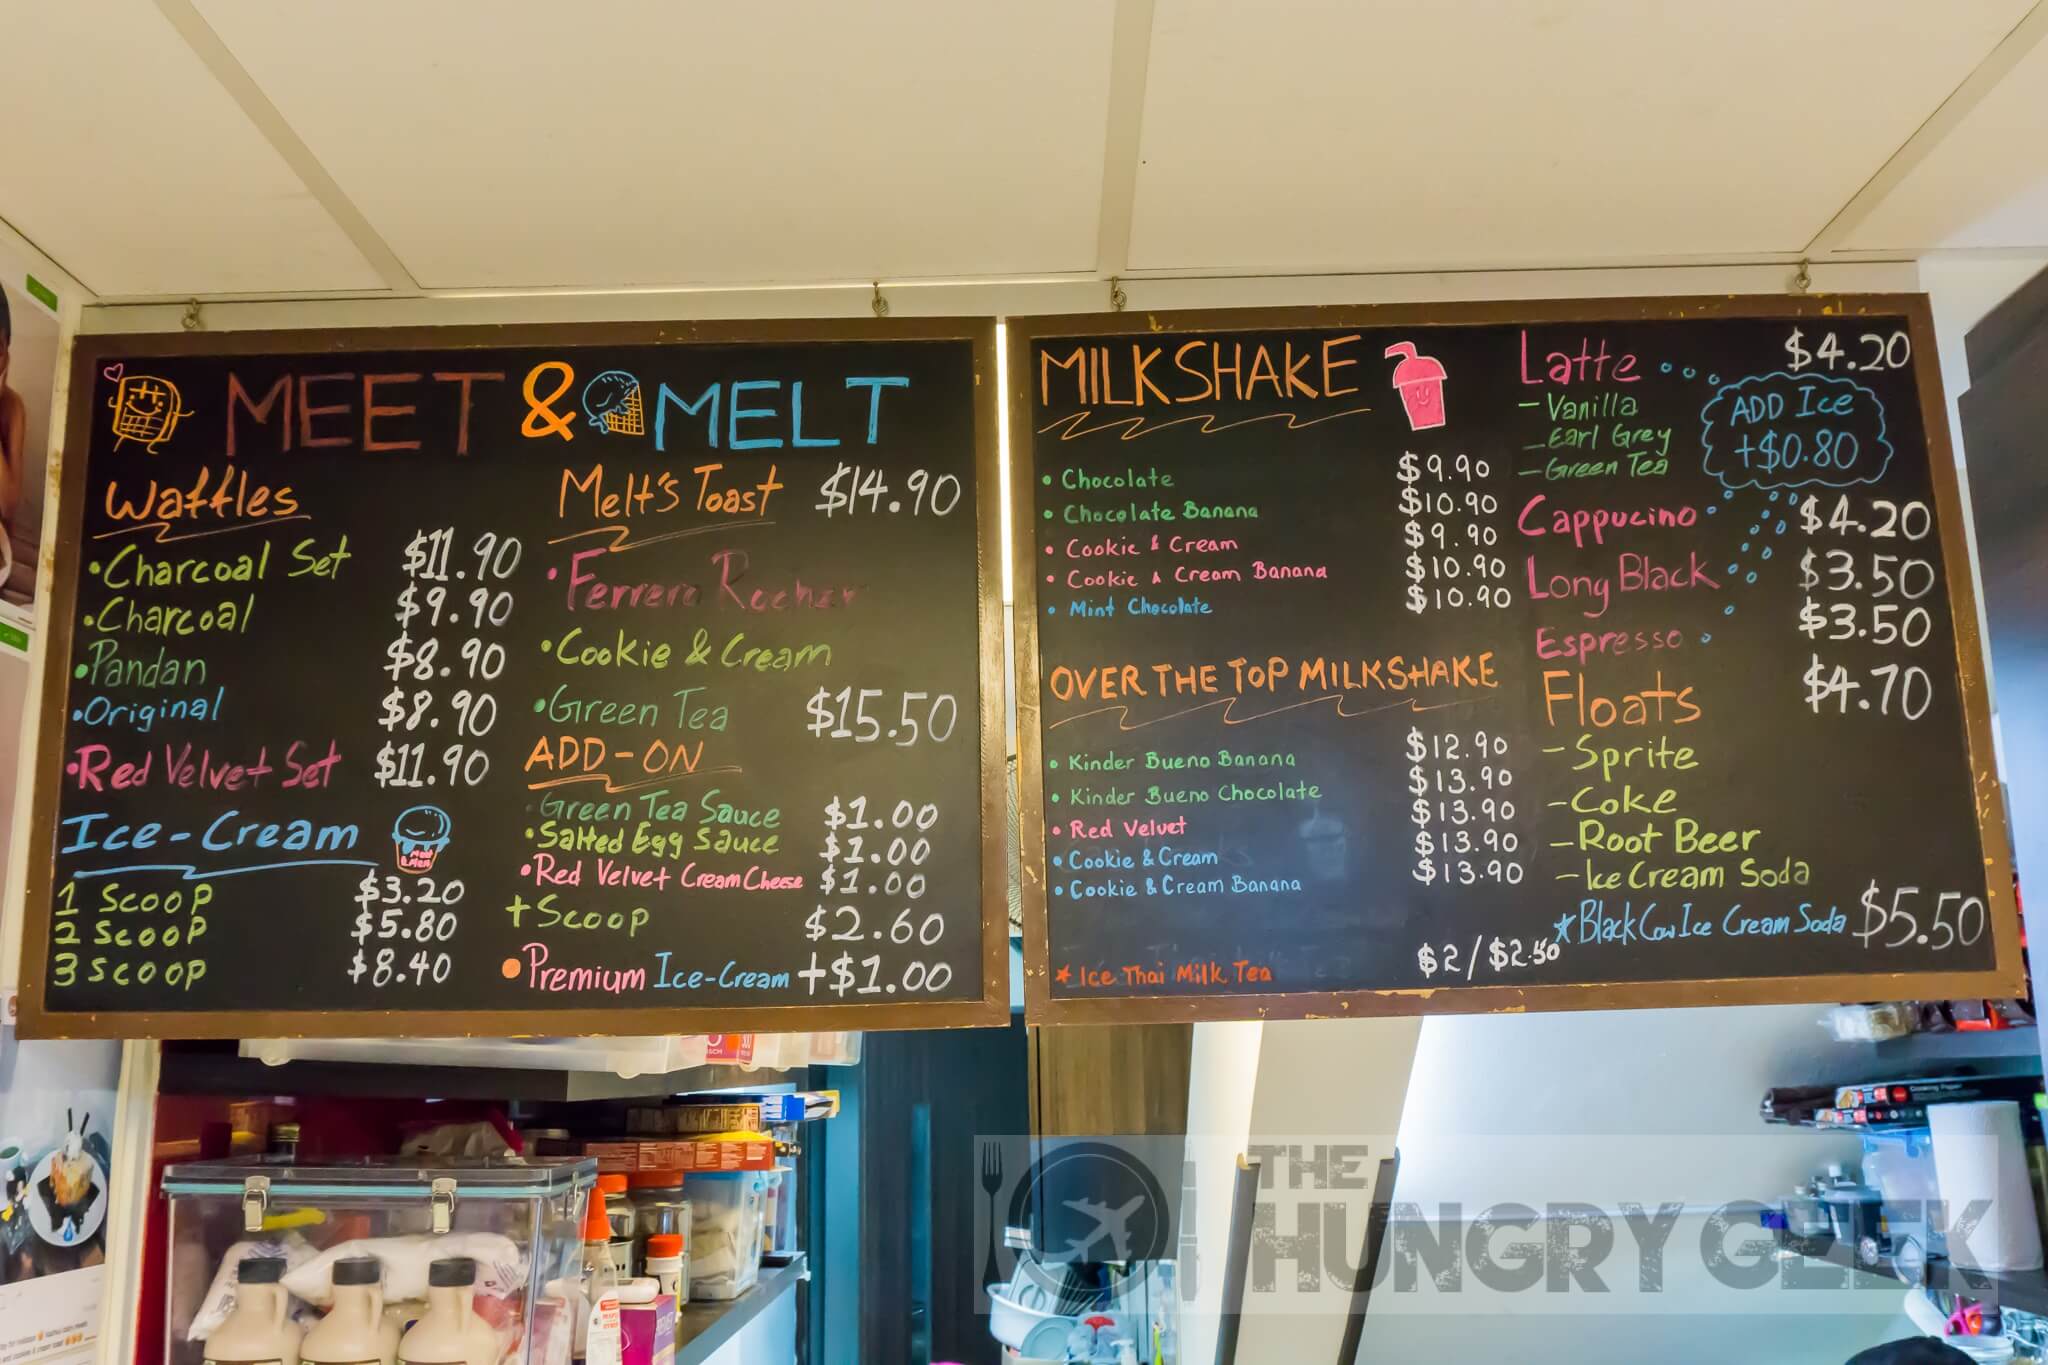 MEET & MELT
Waffles
•Charcoal Set $11.90
•Charcoal $9.90
•Pandan $8.90
•Original $8.90
•Red Velvet Set $11.90
Ice-Cream
Meet & Melt
1 Scoop $3.20
2 Scoop $5.80
3 Scoop $8.40
Melt's Toast $14.90
•Ferrero Rocher
•Cookie & Cream
•Green Tea $15.50
ADD-ON
Green Tea Sauce $1.00
•Salted Egg Sauce $1.00
•Red Velvet Cream Cheese $1.00
+Scoop $2.60
Premium Ice-Cream +$1.00
MILKSHAKE
• Chocolate $9.90
• Chocolate Banana $10.90
• Cookie & Cream $9.90
• Cookie & Cream Banana $10.90
• Mint Chocolate $10.90
OVER THE TOP MILKSHAKE
• Kinder Bueno Banana $12.90
• Kinder Bueno Chocolate $13.90
• Red Velvet $13.90
• Cookie & Cream $13.90
• Cookie & Cream Banana $13.90
★ Ice Thai Milk Tea $2/$2.50
Latte $4.20
- Vanilla
- Earl Grey
- Green Tea
ADD Ice
+$0.80
Cappucino $4.20
Long Black $3.50
Espresso $3.50
Floats $4.70
- Sprite
- Coke
- Root Beer
- Ice Cream Soda
★ Black Cow Ice Cream Soda $5.50
THE
HUNGRY GEEK